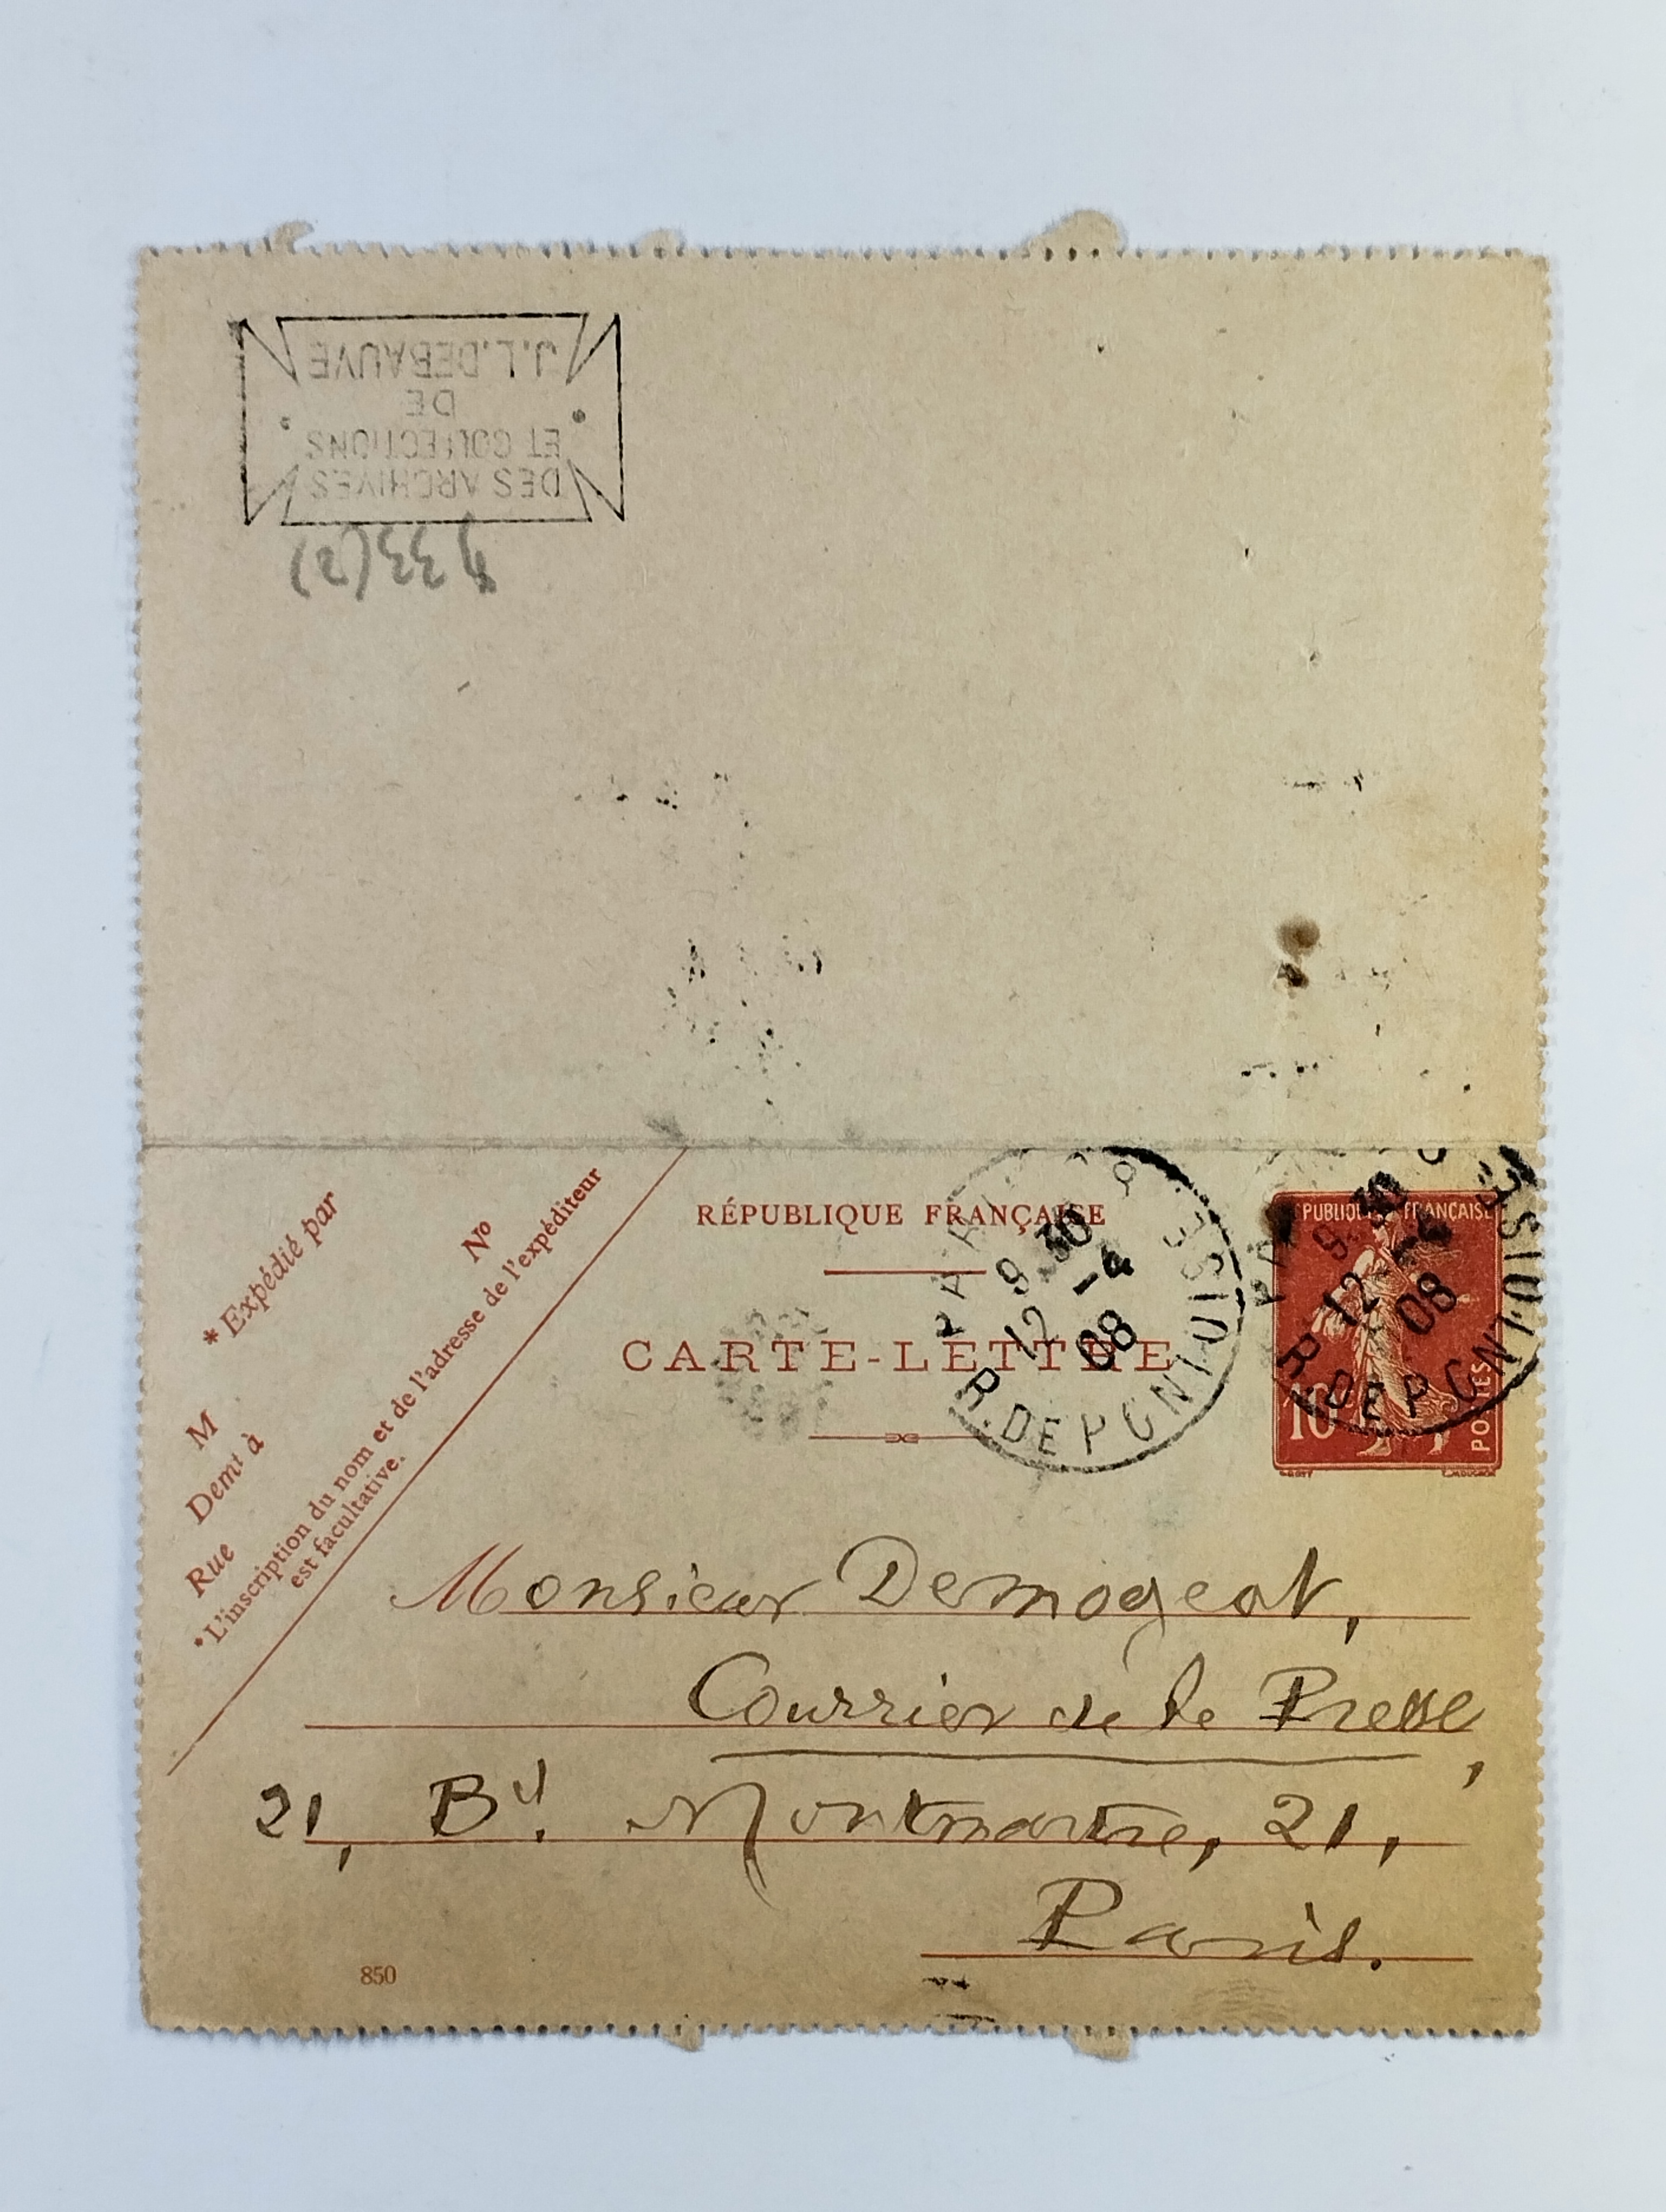 DES ARCHIVES
ET COLLECTIONS
DE
J.L. DEBAUVE
* Expédié par
M
Nº
Demt à
Rue
*L'inscription du nom et de l'adresse de l'expéditeur
est facultative.
RÉPUBLIQUE FRANÇAISE
CARTE-LETTRE
9 30
12 -4
08
R. DE PONTOISE
RÉPUBLIQUE FRANÇAISE
10
POSTES
9 30
12 -4
08
R. DE PONTOISE
Monsieur Demogeot,
Courrier de la Presse,
21, Bd. Montmartre, 21,
Paris.
850